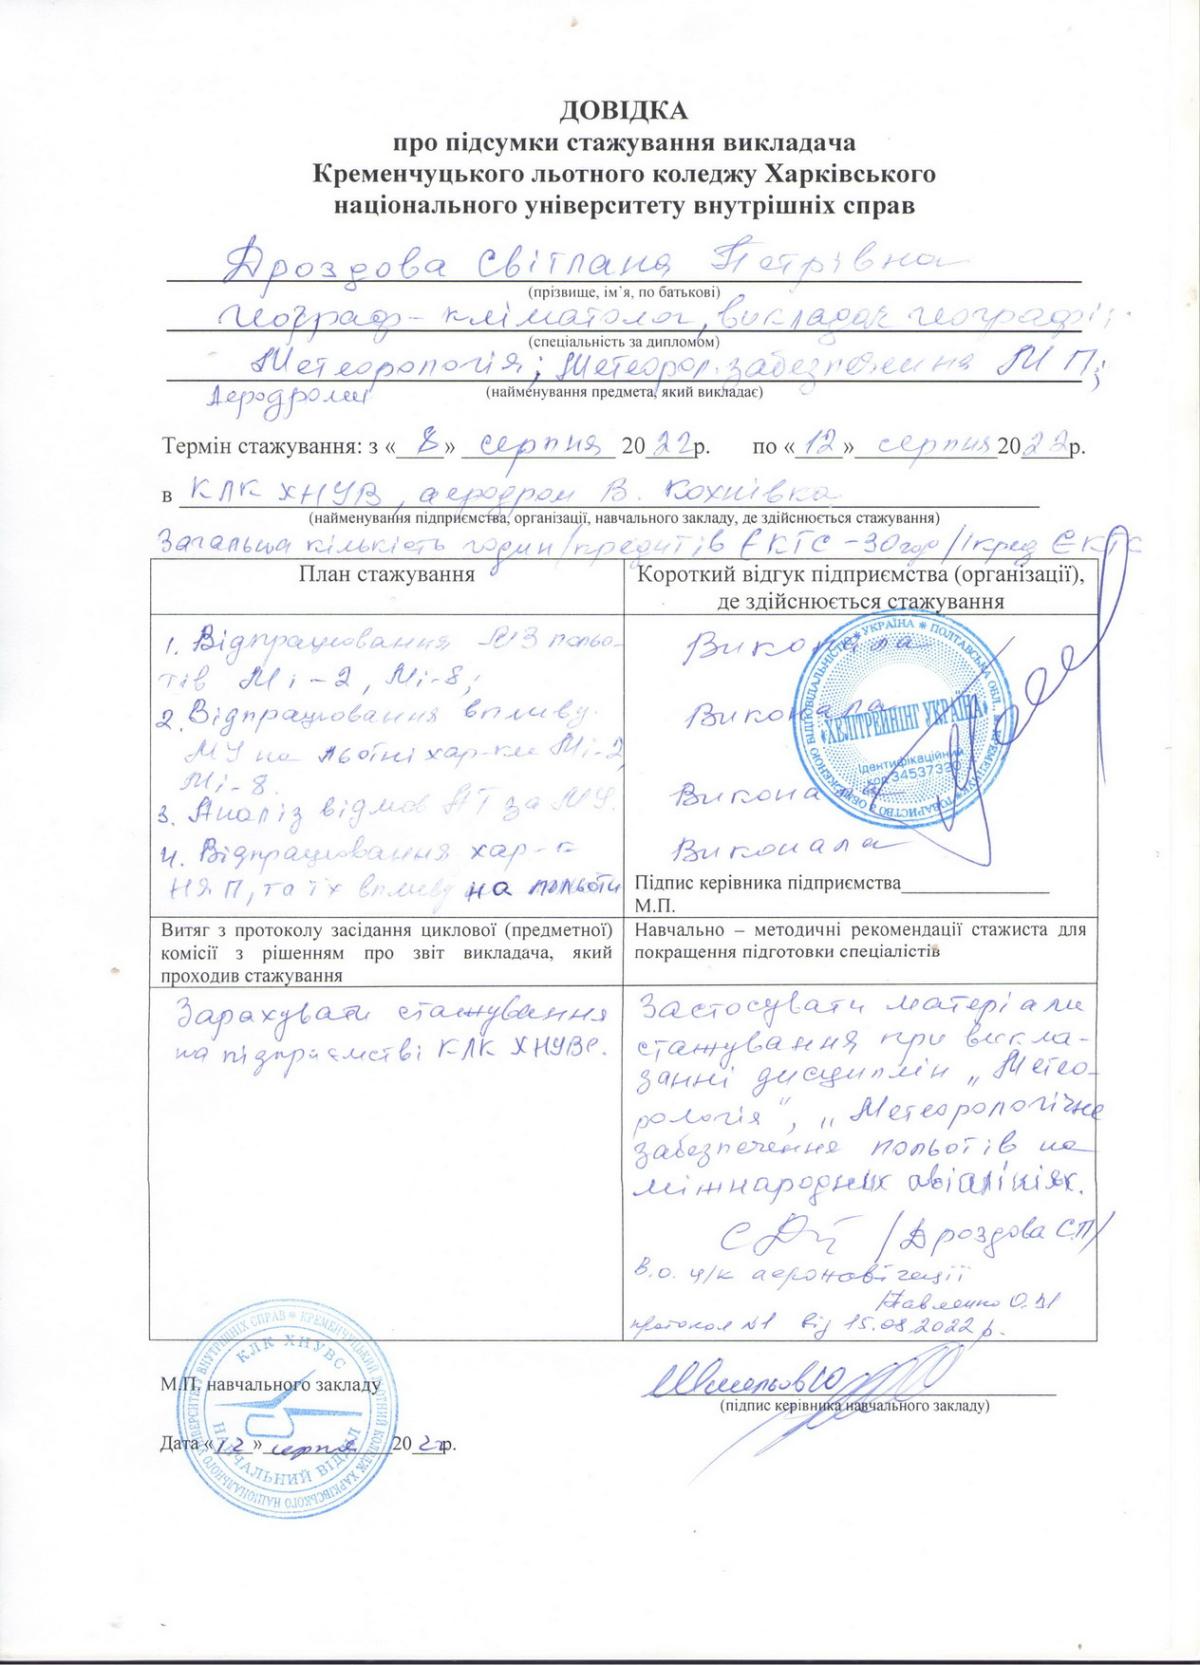 ДОВІДКА
про підсумки стажування викладача
Кременчуцького льотного коледжу Харківського
національного університету внутрішніх справ
Дроздова Світлана Петрівна
(прізвище, ім’я, по батькові)
географ-кліматолог, викладач географії;
(спеціальність за дипломом)
Метеорологія; Метеорол. забезпечення МП;
Аеродроми
(найменування предмета, який викладає)
Термін стажування: з «8» серпня 2022р. по «12» серпня 2022р.
в КЛК ХНУВ, аеродром В. Кохнівка
(найменування підприємства, організації, навчального закладу, де здійснюється стажування)
Загальна кількість годин/кредитів ЄКТС -30год/1кред ЄКТС
План стажування
1. Відпрацювання МЗ польо-
тів Мі-2, Мі-8;
2. Відпрацювання впливу
МУ на льотні хар-ки Мі-2,
Мі-8.
3. Аналіз відмов АТ за МУ.
4. Відпрацювання хар-к
НЯП, та їх впливу на польоти
Короткий відгук підприємства (організації),
де здійснюється стажування
Виконала
Виконала
Виконала
Виконала
УКРАЇНА * ПОЛТАВСЬКА ОБЛ., М. КРЕМЕНЧУК * ТОВАРИСТВО З ОБМЕЖЕНОЮ ВІДПОВІДАЛЬНІСТЮ
«ХЕЛІТРЕЙНІНГ УКРАЇНА»
Ідентифікаційний
код 34537330
Підпис керівника підприємства
М.П.
Витяг з протоколу засідання циклової (предметної)
комісії з рішенням про звіт викладача, який
проходив стажування
Навчально – методичні рекомендації стажиста для
покращення підготовки спеціалістів
Зарахувати стажування
на підприємстві КЛК ХНУВС.
Застосувати матеріали
стажування при викла-
занні дисциплін „Метео-
рологія“, „Метеорологічне
забезпечення польотів на
міжнародних авіалініях.
/Дроздова С.П/
В.о. ц/к аеронавігації
Павленко О.
протокол №1 від 15.08.2022 р.
КРЕМЕНЧУЦЬКИЙ ЛЬОТНИЙ КОЛЕДЖ ХАРКІВСЬКОГО НАЦІОНАЛЬНОГО УНІВЕРСИТЕТУ ВНУТРІШНІХ СПРАВ
КЛК ХНУВС
НАВЧАЛЬНИЙ ВІДДІЛ
М.П. навчального закладу
(підпис керівника навчального закладу)
Дата «12» серпня 2022р.